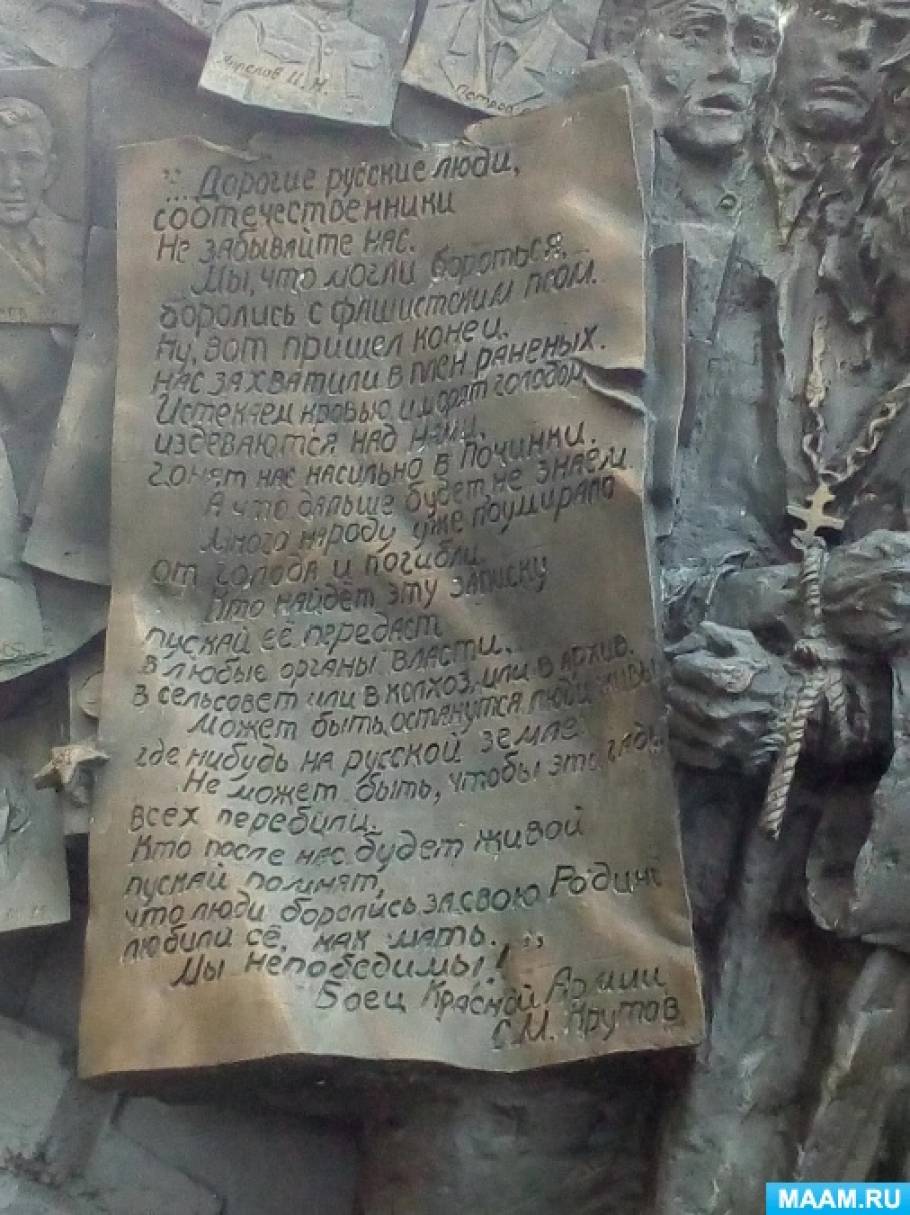 Апрелов И. Н.
"...Дорогие русские люди,
соотечественники
Не забывайте нас.
Мы, что могли бороться,
боролись с фашистским псом.
Ну, вот пришел конец.
Нас захватили в плен раненых.
Истекаем кровью и морят голодом,
издеваются над нами,
гонят нас насильно в Починки.
А что дальше будет, не знаем.
Много народу уже поумирало
от голода и погибли.
Кто найдёт эту записку
пускай её передаст
в любые органы власти.
в сельсовет или в колхоз, или в архив.
Может быть, останутся люди живы
где нибудь на русской земле.
Не может быть, чтобы эти гады
всех перебили.
Кто после нас будет живой
пускай помнят,
что люди боролись за свою Родину
любили её, как мать. "
Мы непобедимы!
Боец Красной Армии
С.М. Крутов
MAAM.RU